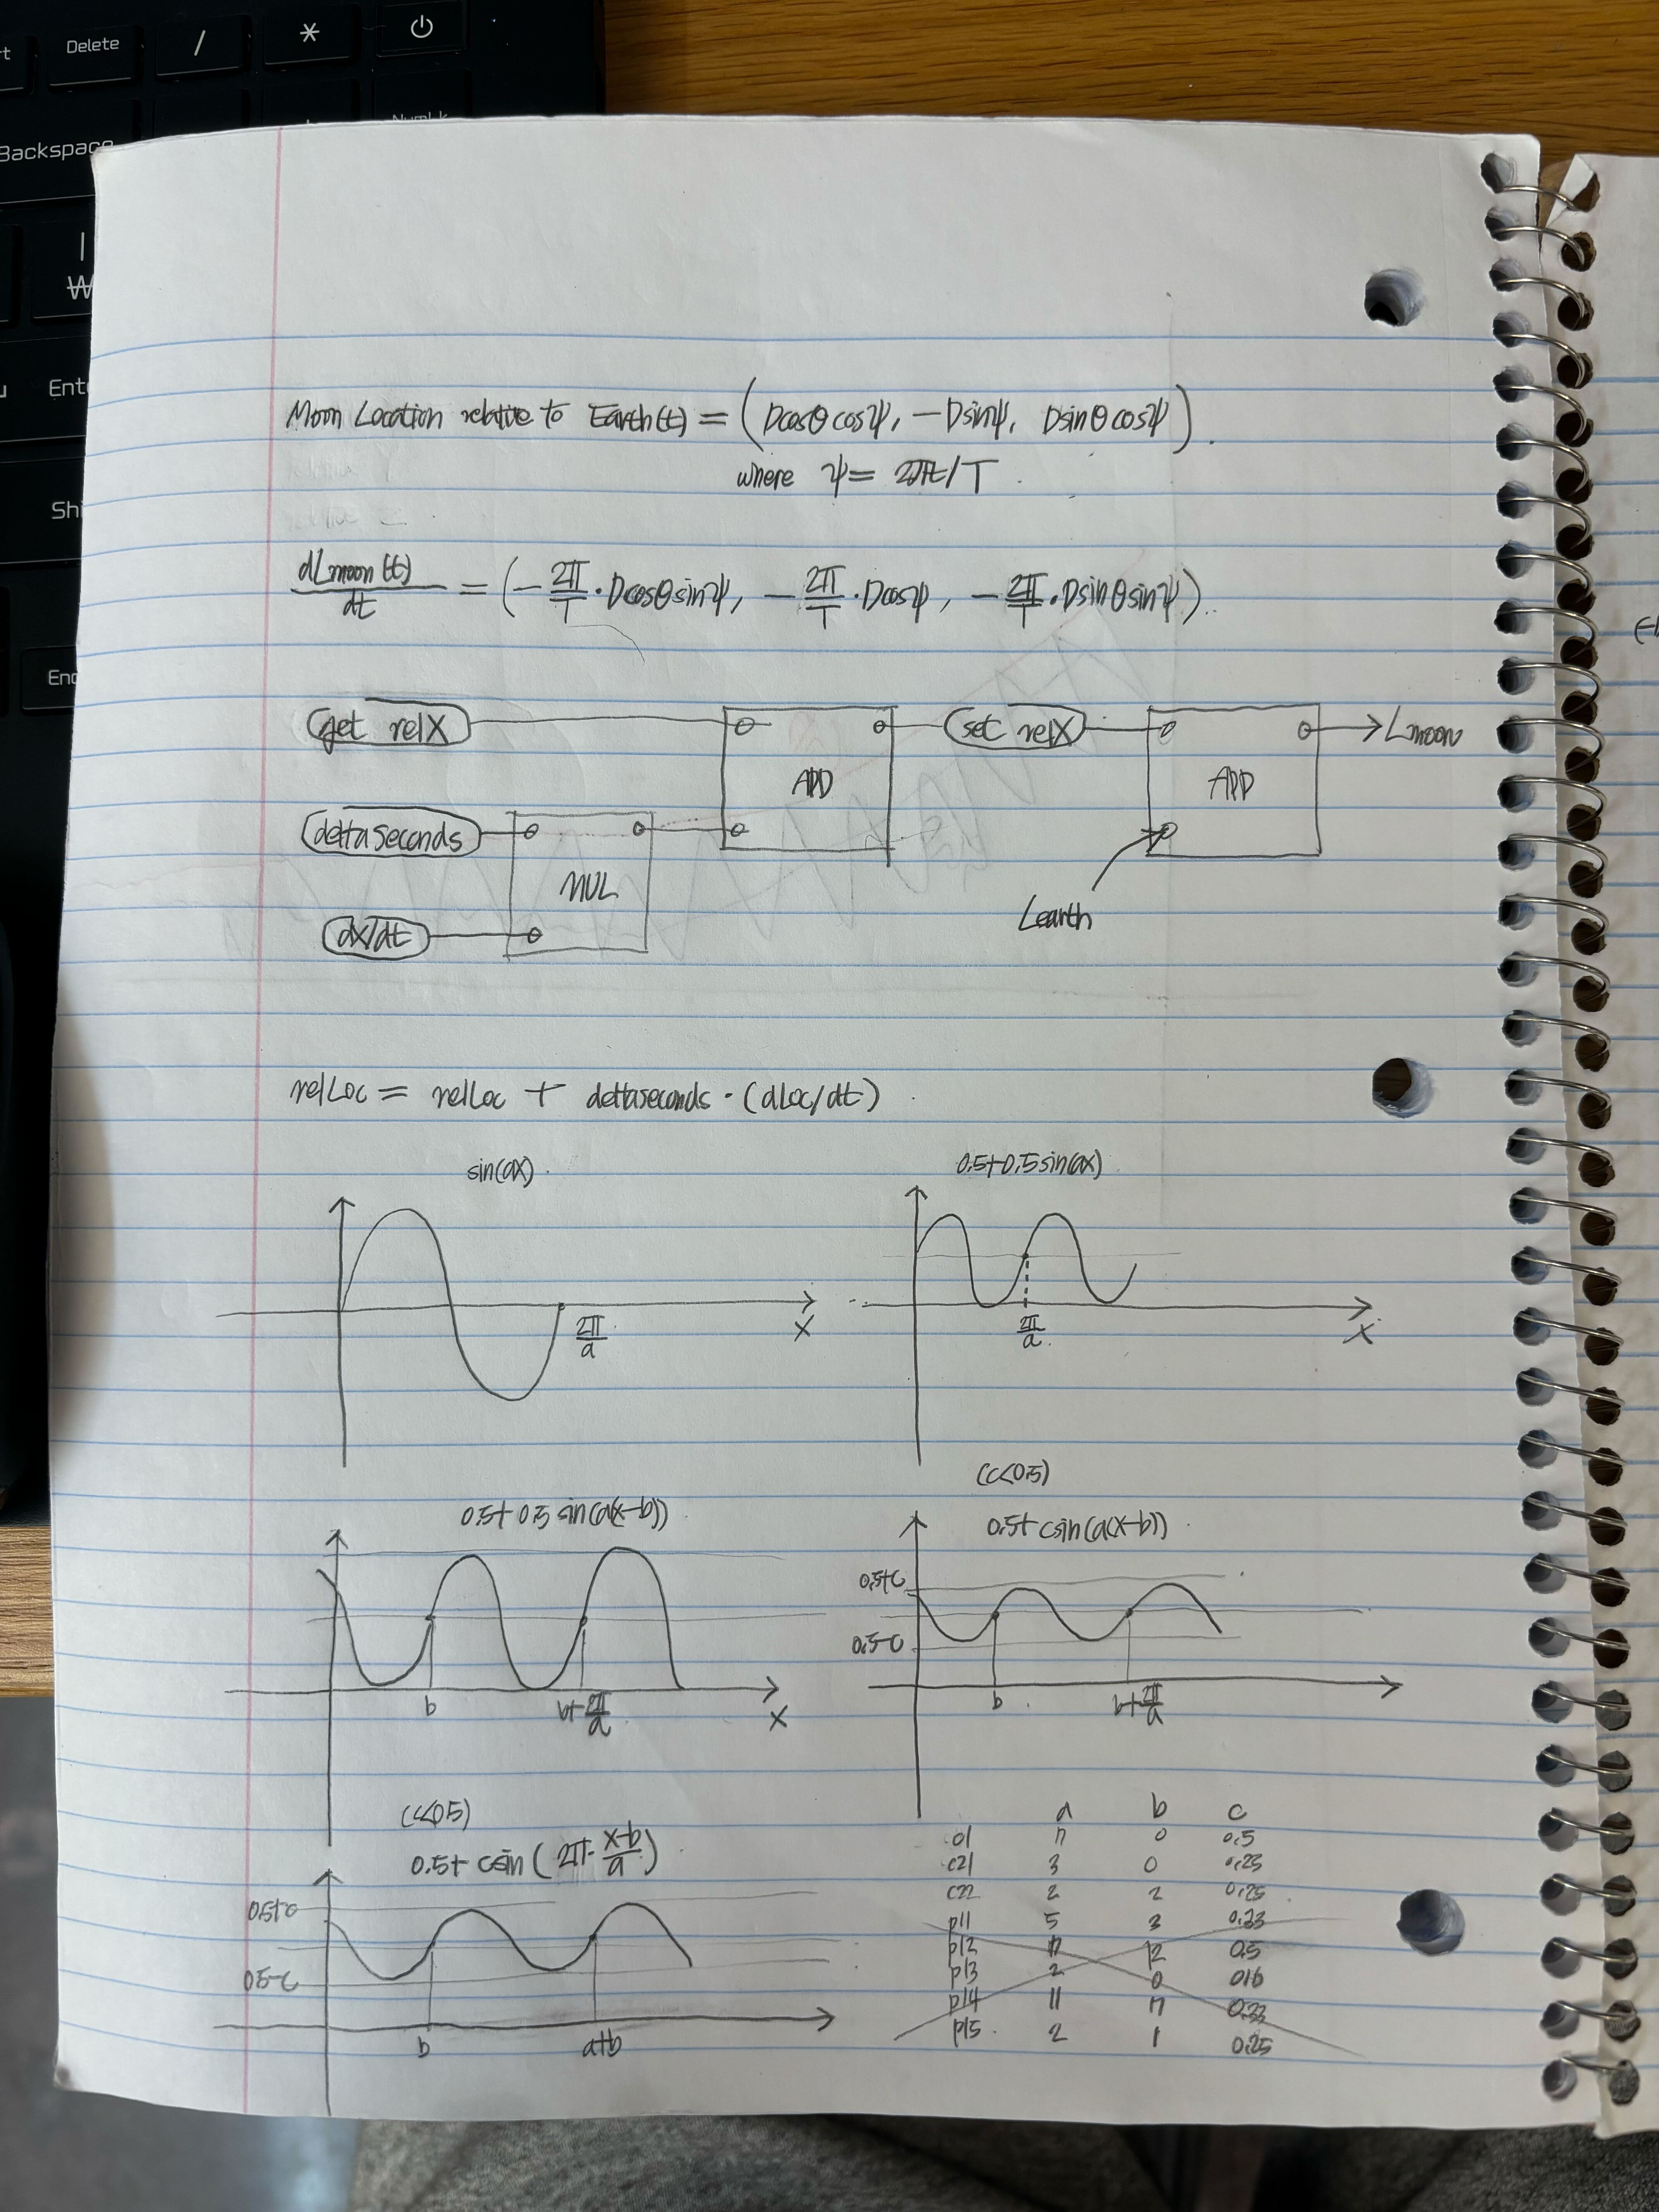 Delete
/
*
Backspace
NumLk
₩
Ent
Shi
End
Moon Location relative to Earth(t) = (Dcosθcosψ, -Dsinψ, Dsinθcosψ).
where ψ = 2πt/T
dLmoon(t)/dt = (-2π/T·Dcosθsinψ, -2π/T·Dcosψ, -2π/T·Dsinθsinψ).
get relX
ADD
set relX
ADD
Lmoon
deltaseconds
MUL
dx/dt
Learth
relLoc = relLoc + deltaseconds·(dLoc/dt)
sin(ax).
0.5+0.5sin(ax)
2π/a
X
2π/a.
X
0.5+0.5 sin(a(x-b))
(c<0.5)
0.5+csin(a(x-b))
0.5+c
0.5-c
b
b+2π/a
X
b
b+2π/a
(c<0.5)
0.5+csin(2π·x-b/a)
0.5+c
0.5-c
b
a+b
a b c
c1 7 0 0.5
c21 3 0 0.25
c22 2 2 0.25
p11 5 3 0.33
p12 7 12 0.5
p13 2 0 0.16
p14 11 7 0.33
p15 2 1 0.25